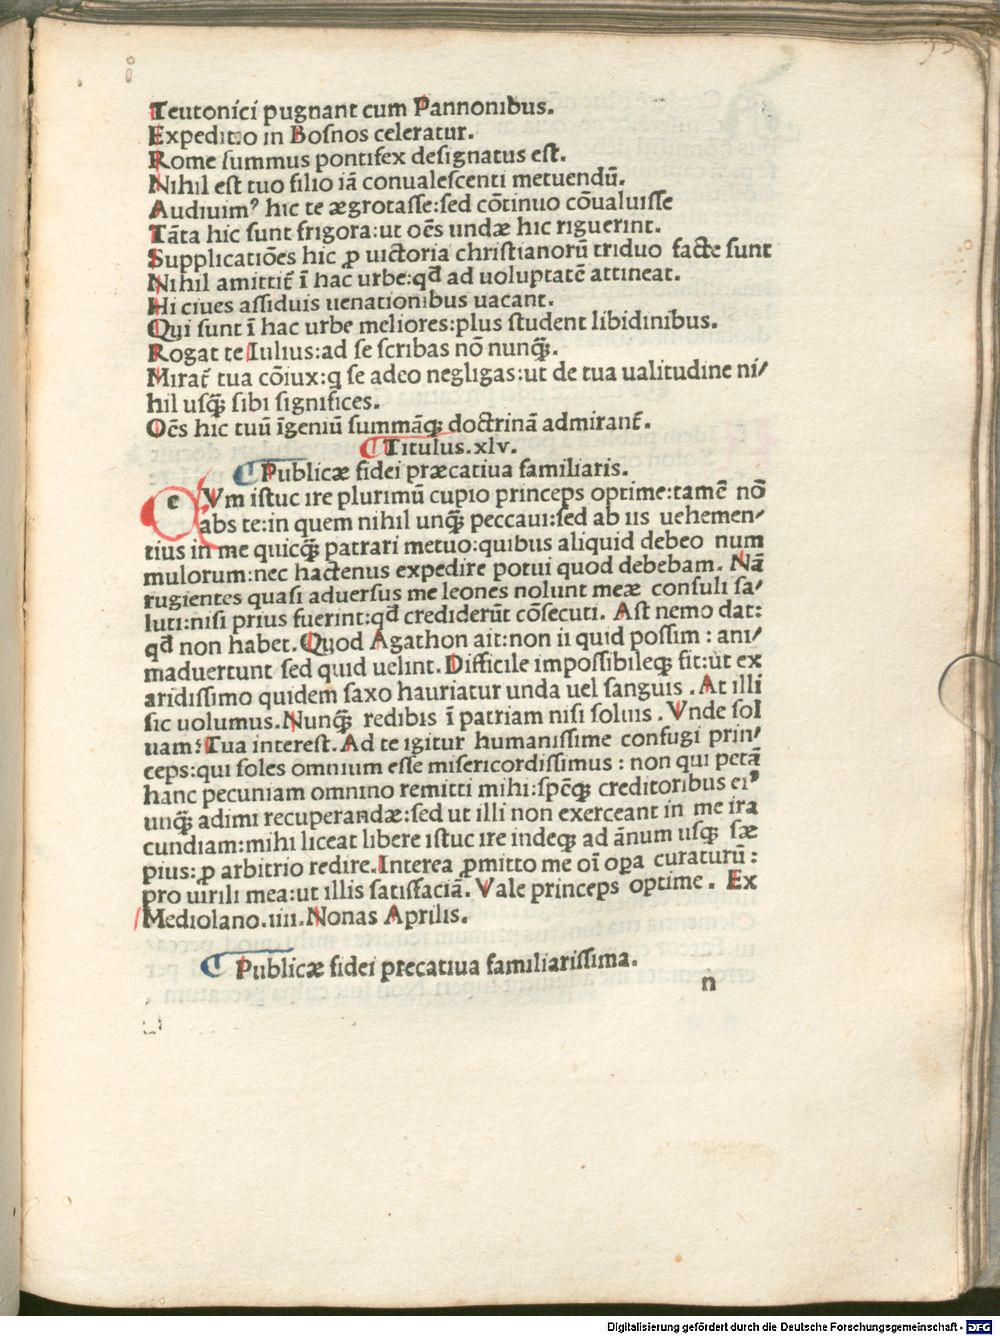 Teutonici pugnant cum Pannonibus.
Expeditio in Bosnos celeratur.
Rome summus pontifex designatus est.
Nihil est tuo filio iā conualescenti metuendū.
Audiuimꝰ hic te ægrotasse:sed cōtinuo cōualuisse
Tāta hic sunt frigora:ut oēs undæ hic riguerint.
Supplicatiōes hic ꝓ uictoria christianorū triduo facte sunt
Nihil amittit̄ ī hac urbe:qd̄ ad uoluptatē attineat.
Hi ciues assiduis uenationibus uacant.
Qui sunt ī hac urbe meliores:plus student libidinibus.
Rogat te Iulius:ad se scribas nō nunq̄ꝫ.
Mirat̄ tua cōiux:q se adeo negligas:ut de tua ualitudine ni/
hil usq̄ꝫ sibi significes.
Oēs hic tuū īgeniū summāqꝫ doctrinā admirant̄.
Titulus.xlv.
Publicæ fidei præcatiua familiaris.
e Vm istuc ire plurimū cupio princeps optime:tamē nō
abs te:in quem nihil unq̄ꝫ peccaui:sed ab iis uehemen/
tius in me quicq̄ꝫ patrari metuo:quibus aliquid debeo num
mulorum:nec hactenus expedire potui quod debebam. Nā
rugientes quasi aduersus me leones nolunt meæ consuli sa/
luti:nisi prius fuerint:qd̄ crediderūt cōsecuti. Ast nemo dat:
qd̄ non habet. Quod Agathon ait:non ii quid possim : ani/
maduertunt sed quid uelint. Difficile impossibileqꝫ fit:ut ex
aridissimo quidem saxo hauriatur unda uel sanguis . At illi
sic uolumus. Nunq̄ꝫ redibis ī patriam nisi soluis . Vnde sol
uam? Tua interest. Ad te igitur humanissime confugi prin/
ceps:qui soles omnium esse misericordissimus : non qui petā
hanc pecuniam omnino remitti mihi:spēqꝫ creditoribus eiꝰ
unq̄ꝫ adimi recuperandæ:sed ut illi non exerceant in me ira
cundiam:mihi liceat libere istuc ire indeqꝫ ad ānum usqꝫ sæ
pius:ꝓ arbitrio redire. Interea ꝓmitto me oī oꝑa curaturū :
pro uirili mea:ut illis satisfaciā. Vale princeps optime. Ex
Mediolano.iiii.Nonas Aprilis.
Publicæ fidei precatiua familiarissima.
n
Digitalisierung gefördert durch die Deutsche Forschungsgemeinschaft - DFG